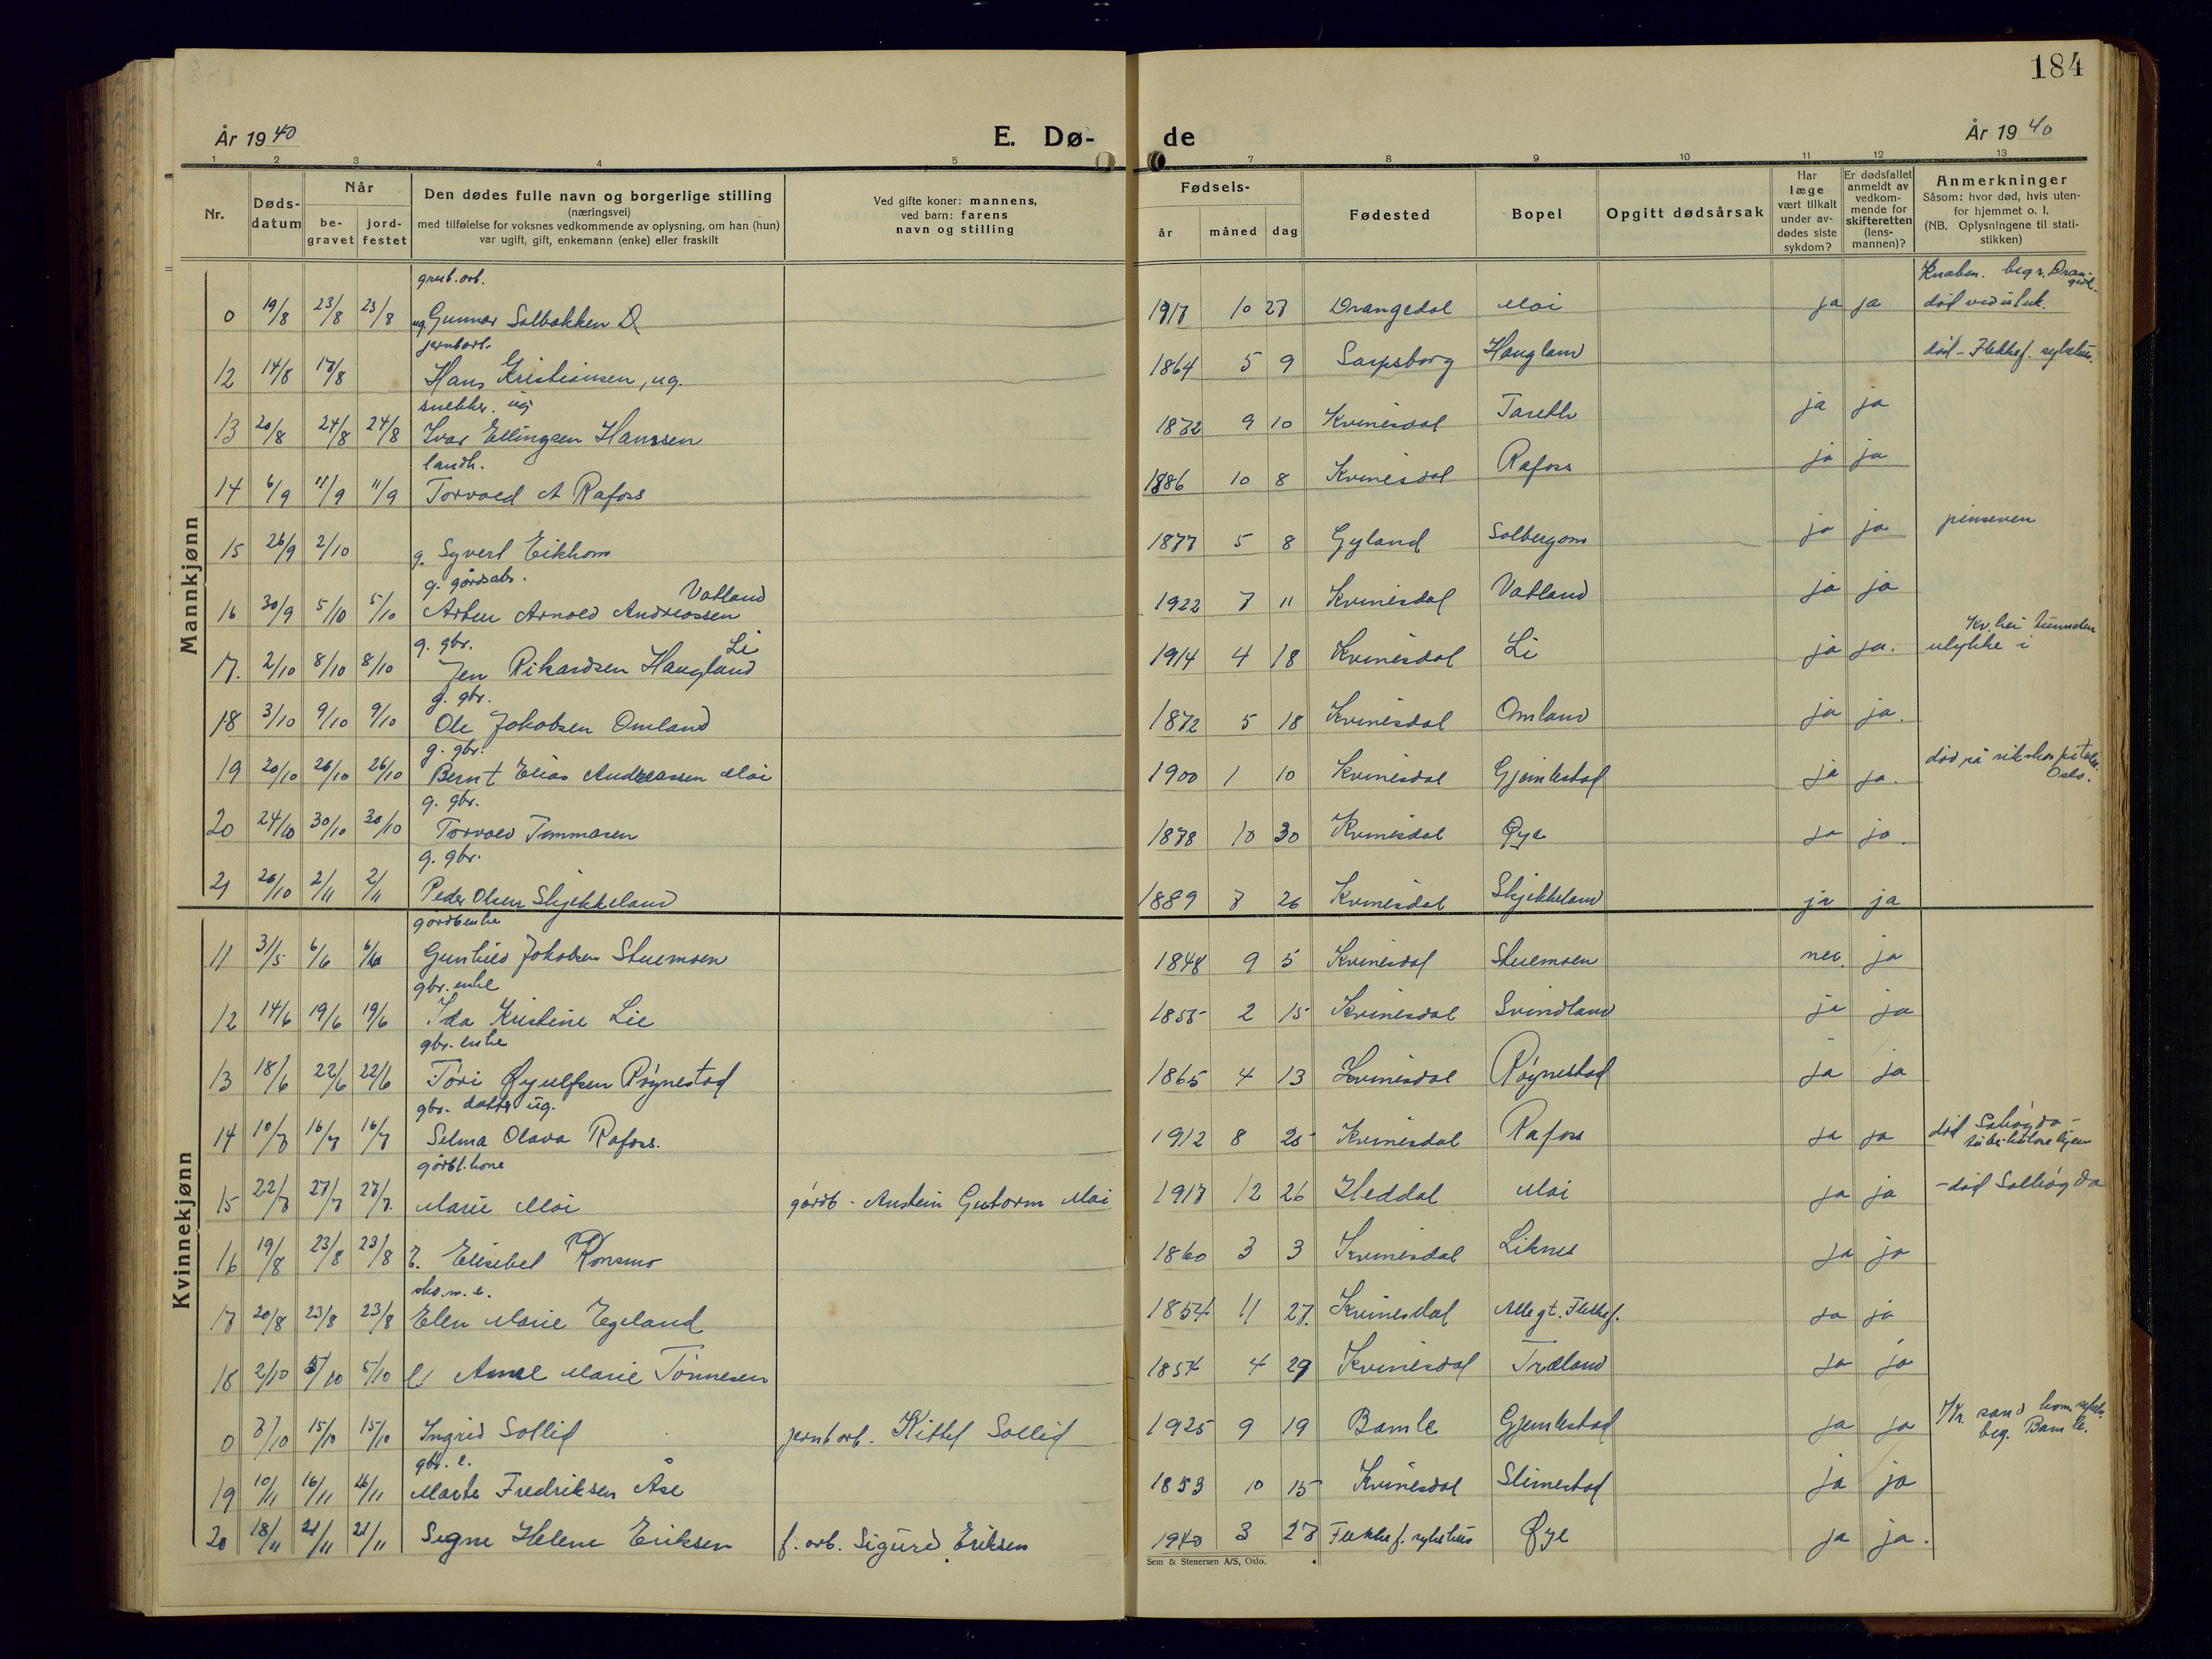 184
År 1940
E. Dø-
de
År 1940
1 2 3 4 5 7 8 9 10 11 12 13
Nr.
Døds-
datum
Når
be-
gravet
jord-
festet
Den dødes fulle navn og borgerlige stilling
(næringsvei)
med tilføielse for voksnes vedkommende av oplysning, om han (hun)
var ugift, gift, enkemann (enke) eller fraskilt
Ved gifte koner: mannens,
ved barn: farens
navn og stilling
Fødsels-
år måned dag
Fødested
Bopel
Opgitt dødsårsak
Har
læge
vært tilkalt
under av-
dødes siste
sykdom?
Er dødsfallet
anmeldt av
vedkom-
mende for
skifteretten
(lens-
mannen)?
Anmerkninger
Såsom: hvor død, hvis uten-
for hjemmet o. l.
(NB. Oplysningene til stati-
stikken)
Mannkjønn
grub.arb.
0 19/8 23/8 23/8 ug Gunnar Solbakken 1917 10 27 Drangedal Moi ja ja Knaben. begr. Dran-
gedl.
død ved uluk.
jernbarb.
12 14/8 17/8 Hans Kristiansen, ug. 1864 5 9 Sarpsborg Haugland død - Flekkef. sykehus.
snekker. ug
13 20/8 24/8 24/8 Ivar Ellingsen Hanssen 1872 9 10 Kvinesdal ja ja
landh.
14 6/9 11/9 11/9 Torvald A Rafoss 1886 10 8 Kvinesdal Rafoss ja ja
15 26/9 2/10 g. Syvert Eikhom 1877 5 8 Gyland Solbergom ja ja pinseven
g. gårdsab.
Vatland
16 30/9 5/10 5/10 Arnold Andreassen 1922 7 11 Kvinesdal Vatland ja ja
g. gbr.
Li
17. 2/10 8/10 8/10 Jen Rikardsen Haugland 1914 4 18 Kvinesdal Li ja ja. Kv. hei tunnelen
ulykke i
g. gbr.
18 3/10 9/10 9/10 Ole Jakobsen Omland 1872 5 18 Kvinesdal Omland ja ja.
g. gbr.
19 20/10 26/10 26/10 Bernt Elias Andreassen Moi 1900 1 10 Kvinesdal Gjemlestad ja ja. død på rikshospitalet
Oslo.
g. gbr.
20 24/10 30/10 30/10 Torvald Tommasen 1878 10 30 Kvinesdal Øye ja ja.
g. gbr.
21 26/10 2/11 2/11 Peder Olsen Skjekkeland 1889 7 26 Kvinesdal Skjekkeland ja ja
Kvinnekjønn
gårdbenke
11 31/5 6/6 6/6 Gunhild Jakobsen Stuemoen 1848 9 5 Kvinesdal Stuemoen nei. ja
gbr. enke
12 14/6 19/6 19/6 Ida Kristine Lie 1855 2 15 Kvinesdal Svindland ja ja
gbr. enke
13 18/6 22/6 22/6 Tori Øyulfsen Røynestad 1865 4 13 Kvinesdal Røynestad ja ja
gbr. datter ug.
14 10/7 16/7 16/7 Selma Olava Rafoss. 1912 8 25 Kvinesdal Rafoss ja ja død Solhøgda -
tuberkulosehjem
gårdb.kone
15 22/7 27/7 27/7. Marie Moi gårdb - Anstein Gutorm Moi 1917 12 26 Heddal Moi ja ja - død Solhøgda
16 19/8 23/8 23/8 E. Elisebet Konsmo 1860 3 3 Kvinesdal Liknes ja ja
sko.m.e.
17 20/8 23/8 23/8 Elen Marie Egeland 1854 11 27. Kvinesdal Allegt. Flekkef. ja ja
18 2/10 5/10 5/10 e Anne Marie Tønnesen 1854 4 29 Kvinesdal Træland ja ja
0 7/10 15/10 15/10 Ingrid Sollid jernb arb. Kittel Sollid 1925 9 19 Bamle Gjemlestad ja ja Kr. sand kom. sykeh.
beg. Bamle.
gbr. e.
19 10/11 16/11 16/11 Marte Fredriksen Åse 1853 10 15 Kvinesdal Slimestad ja ja
20 18/11 21/11 21/11 Signe Helene Eriksen f. arb. Sigurd Eriksen 1940 3 27 Flekkef. sykehus Øye ja ja.
Sem & Stenersen A/S, Oslo.